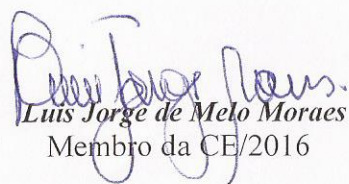 Luis Jorge de Melo Moraes
Membro da CE/2016